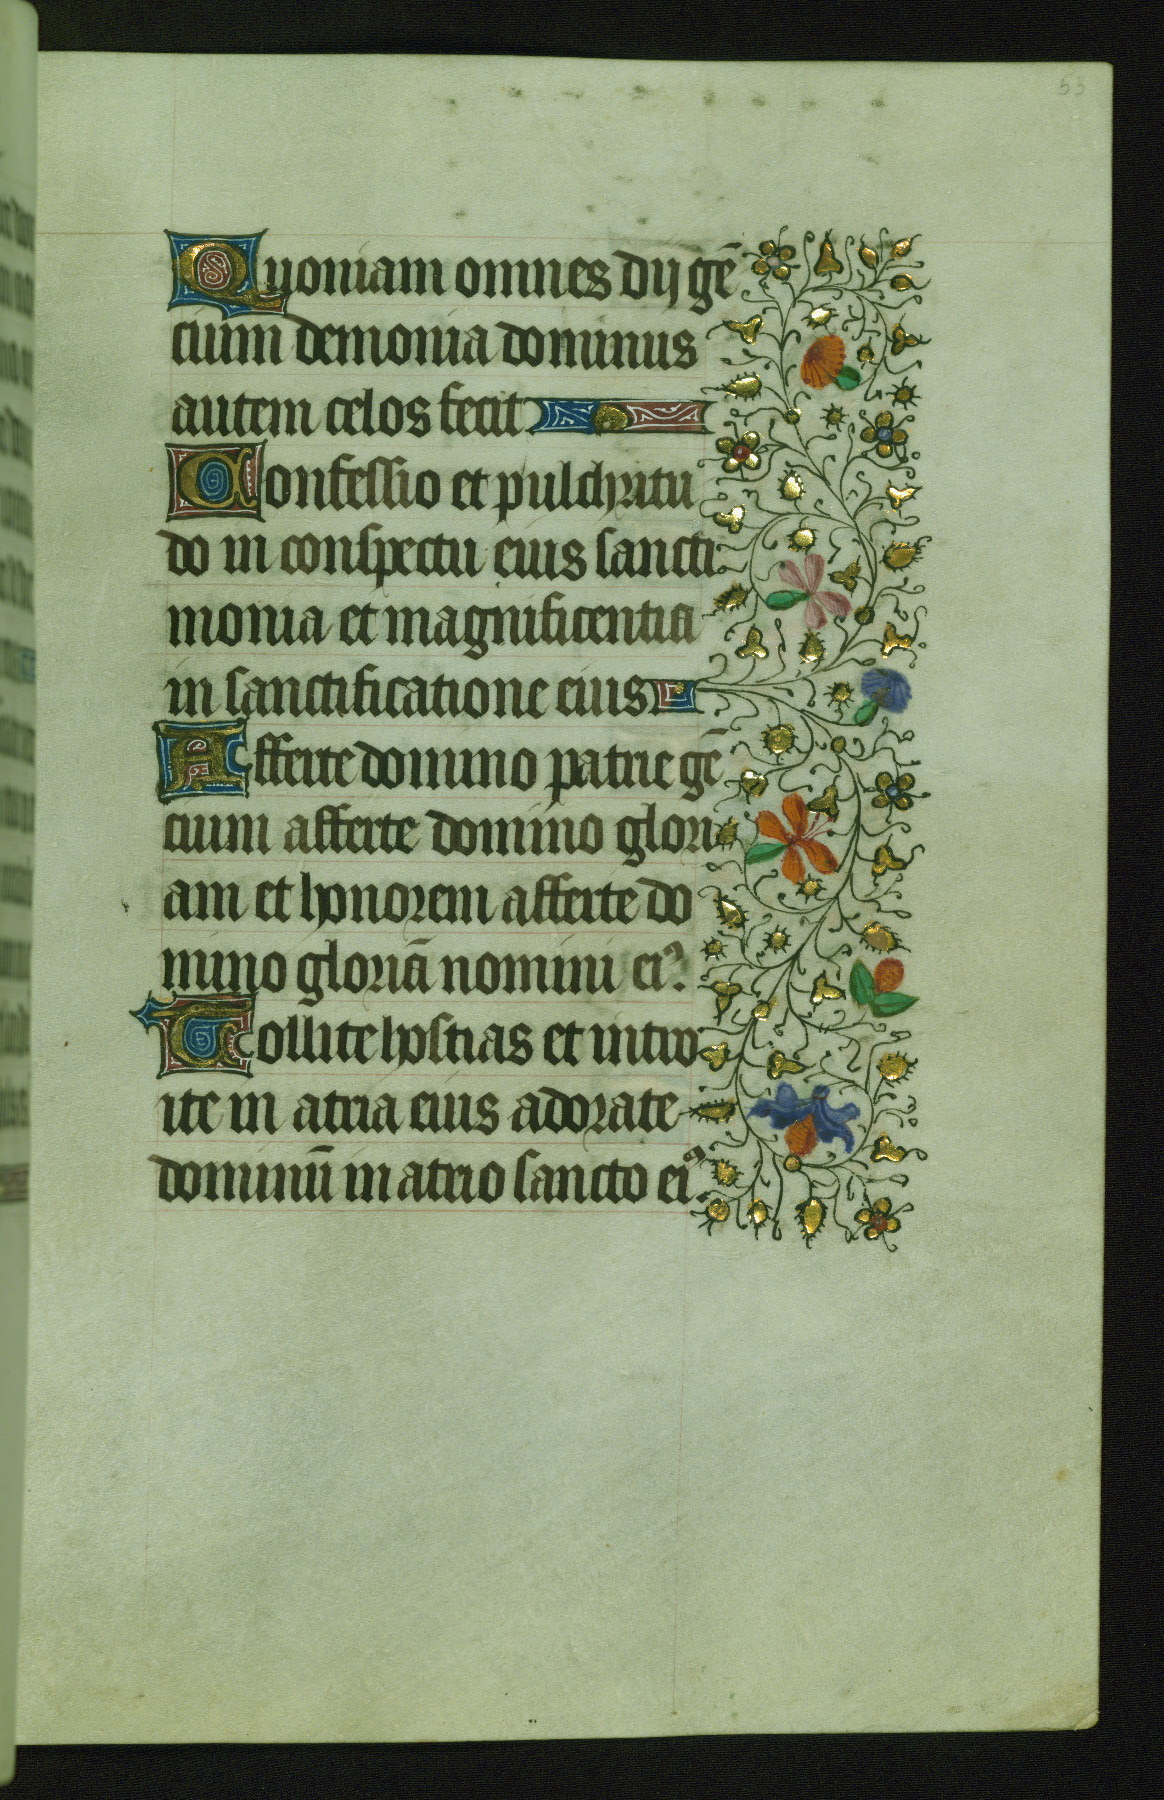 53
Quoniam omnes dij gē
cium demonia dominus
autem celos fecit
Confessio et pulchritu
do in conspectu eius sancti
monia et magnificentia
in sanctificatione eius
Afferte domino patrie gē
cium afferte domino glori
am et honorem afferte do
mino gloriā nomini eiꝰ.
Tollite hostias et intro
ite in atria eius adorate
dominū in atrio sancto eiꝰ.